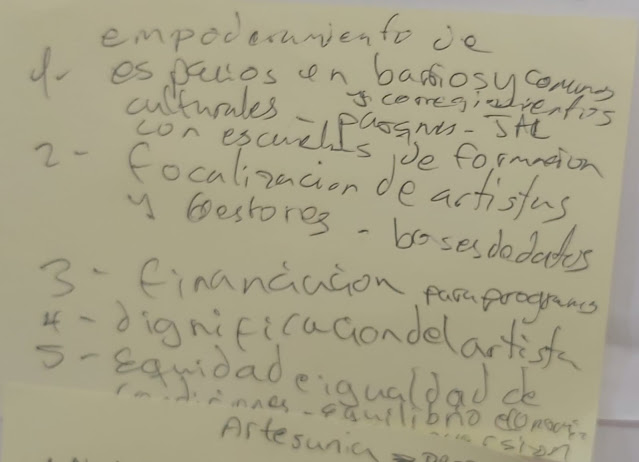 empoderamiento de
1- espacios en barrios y comunas
culturales y corregimientos
con escuelas parques - JAL
de formacion
2- focalizacion de artistas
y Gestores - bases de datos
3- financiación para programas
4- dignificacion del artista
5- Equidad e igualdad de
condiciones - equilibrio
Artesania